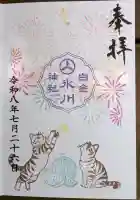 奉拝
白金
氷川
神社
令和八年七月二十六日